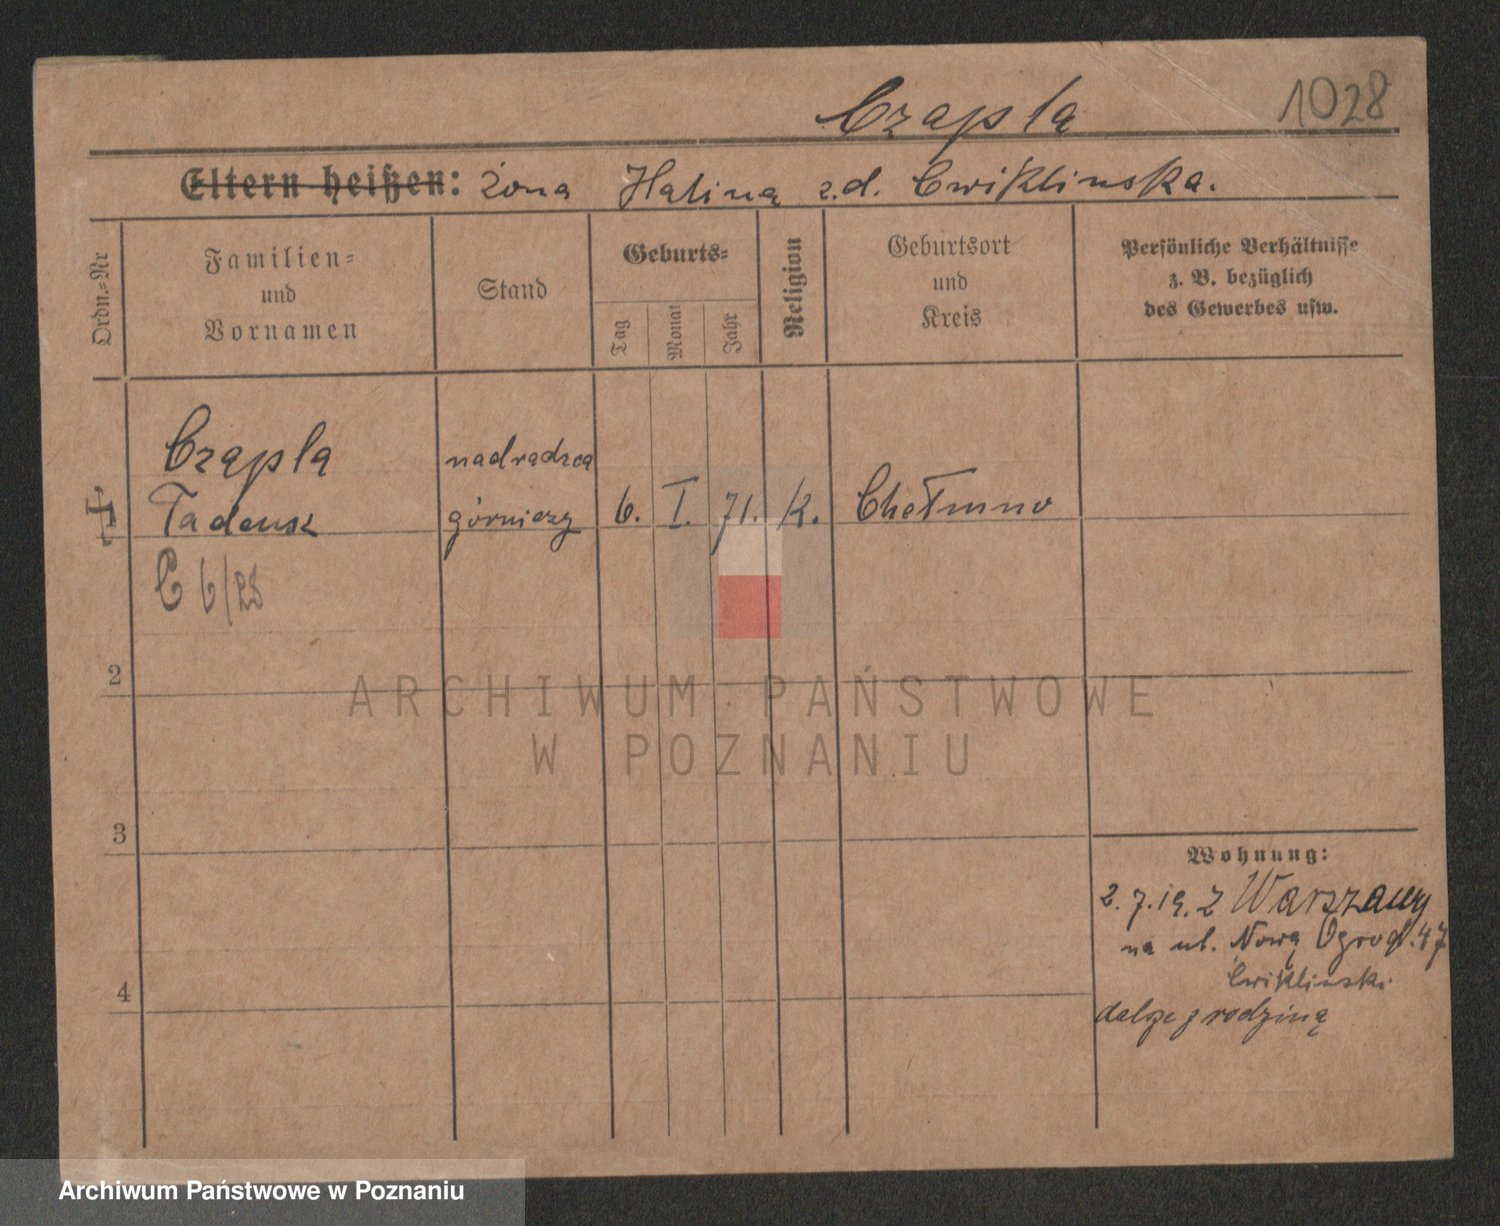 Czapla 1028
Eltern heißen: żona Halina z.d. Cwiklinska.
Ordn.=Nr
Familien=
und
Vornamen
Stand
Geburts=
Tag
Monat
Jahr
Religion
Geburtsort
und
Kreis
Persönliche Verhältnisse
z. B. bezüglich
des Gewerbes usw.
Czapla nadradzca
Tadeusz górniczy 6. I. 71. K. Chełmno
C 6/28
2
3
4
Wohnung:
2.7.19. z Warszawy
na ul. Nową Ogrod. 47
Cwiklinski
dalsze z rodziną
ARCHIWUM PAŃSTWOWE
W POZNANIU
Archiwum Państwowe w Poznaniu